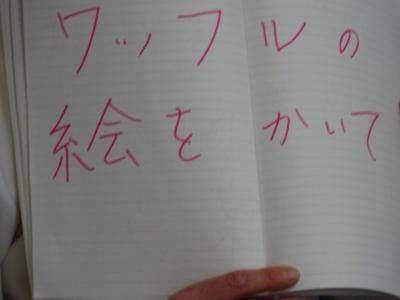 ワッフルの
絵をかいて